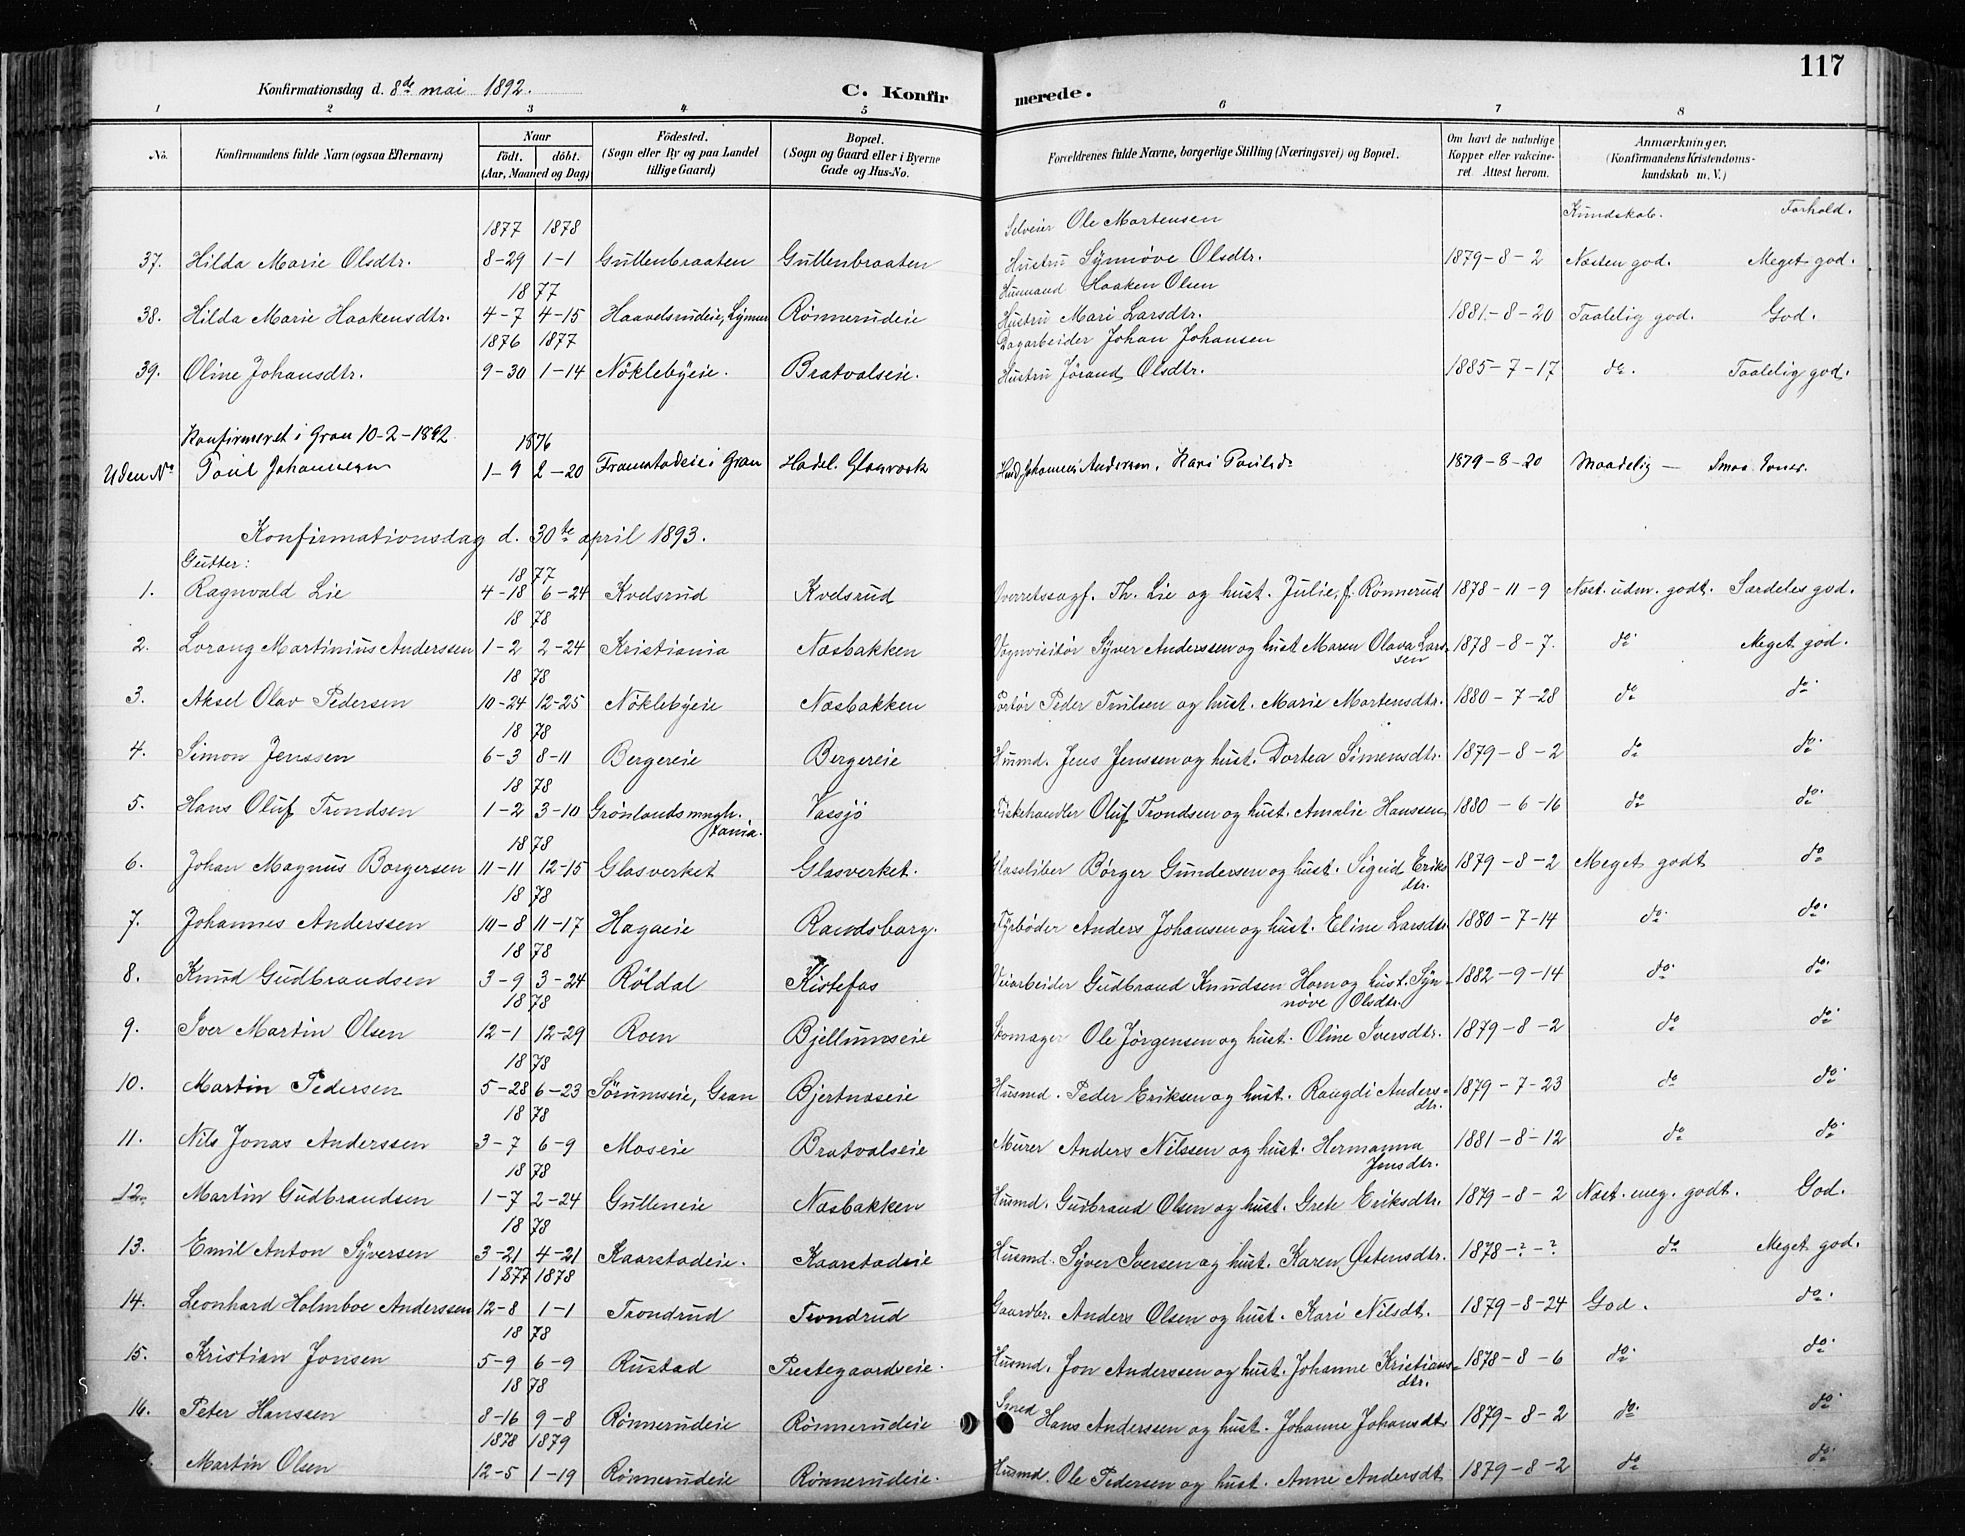 117
Konfirmationsdag d. 8de mai 1892. C. Konfirmerede.
1 2 3 4 5 6 7 8
No. Konfirmandens fulde Navn (ogsaa Efternavn) Naar født. døbt. (Aar, Maaned og Dag) Fødested. (Sogn eller By og paa Landet tillige Gaard) Bopæl. (Sogn og Gaard eller i Byerne Gade og Hus-No. Forældrenes fulde Navne, borgerlige Stilling (Næringsvei) og Bopæl. Om havt de naturlige Kopper eller vakcineret. Attest herom. Anmærkninger. (Konfirmandens Kristendomskundskab m. V.)
Kundskab. Forhold.
1877 1878 Selveier Ole Martensen
37. Hilda Marie Olsdtr. 8-29 1-1 Gullenbraaten Gullenbraaten Hustru Synnøve Olsdtr. 1879-8-2 Næsten god. Meget god.
1877 Husmand Haaken Olsen
38. Hilda Marie Haakensdtr. 4-7 4-15 Haavelsrudeie, Lynner Rønnerudeie Hustru Mari Larsdtr. 1881-8-20 Taalelig god. God.
1876 1877 Dagarbeider Johan Johansen
39. Oline Johansdtr. 9-30 1-14 Nøklebyeie. Bratvalseie. Hustru Jørand Olsdtr. 1885-7-17 do. Taalelig god.
Konfirmeret i Gran 10-2-1892 1876
Uden No Poul Johannesen 1-9 2-20 Framstadeie i Gran Hadel. Glasværk Husmd. Johannes Andersen, Kari Paulsdr 1879-8-20 Maadelig —
Konfirmationsdag d. 30te april 1893.
Gutter:
1877
1. Ragnvald Lie 4-18 6-24 Kvelsrud Kvelsrud Overretssagf. Th. Lie og hust. Julie, f. Rønnerud 1878-11-9 Næst. udm. godt. Særdeles god.
1878
2. Lorang Martinius Anderssen 1-2 2-24 Kristiania Næsbakken Vognvisitør Syver Anderssen og hust Maren Olava Larssen 1878-8-7. do Meget god.
1878
3. Aksel Olav Pedersen 10-24 12-25 Nøklebyeie Næsbakken Portør Peder Trulsen og hust. Marie Martensdtr. 1880-7-28 do do
1878
4. Simon Jenssen 6-3 8-11 Bergereie Bergereie Husmd. Jens Jenssen og hust. Dortea Simensdtr. 1879-8-2 do do
1878
5. Hans Oluf Trondsen 1-2 3-10 Grønlands mngh. Xania. Vassjø Fiskehandler Oluf Trondsen og hust. Amalie Hanssen 1880-6-16 do do
1878
6. Johan Magnus Borgersen 11-11 12-15 Glasverket Glasverket. Glassliber Børger Gundersen og hust. Sigrid Eriksdtr. 1879-8-2 Meget godt do
1878
7. Johannes Anderssen 10-8 11-17 Hagaeie Randsborg. Fyrbøder Anders Johansen og hust. Eline Larsdtr 1880-7-14 do do
1878
8. Knud Gudbrandsen 3-9 3-24 Røldal Kistefos Veiarbeider Gudbrand Knudsen Horn og hust. Synnøve Olsdtr. 1882-9-14 do do
1878
9. Iver Martin Olsen 12-1 12-29 Roen Bjellumseie Skomager Ole Jørgensen og hust. Oline Iversdtr. 1879-8-2 do do
1878
10. Martin Pedersen 5-28 6-23 Sørumseie, Gran Bjertnæseie Husmd. Peder Eriksen og hust. Rangdi Andersdtr. 1879-7-23 do do
1878
11. Nils Jonas Anderssen 3-7 6-9 Moseie Bratvalseie Murer Anders Nilssen og hust. Hermanna Jensdtr. 1881-8-12 do do
1878
12. Martin Gudbrandsen 1-7 2-24 Gulleneie Næsbakken Husmd. Gudbrand Olsen og hust. Grete Eriksdtr. 1879-8-2 Næst. meg. godt. God.
1878
13. Emil Anton Syversen 3-21 4-21 Kaarstadeie. Kaarstadeie Husmd. Syver Iversen og hust. Karen Østensdtr. 1878-?-? do Meget god.
1877 1878
14. Leonhard Holmboe Anderssen 12-8 1-1 Trondrud Trondrud Gaardbr. Anders Olsen og hust. Kari Nilsdt. 1879-8-24 God. do
1878
15. Kristian Jonsen 5-9 6-9 Rustad Prestegaardseie. Husmd. Jon Anderssen og hust. Johanne Kristiansdtr. 1878-8-6 do do
1878
16. Peter Hanssen 8-16 9-8 Rønnerudeie Rønnerudeie Smed Hans Anderssen og hust. Johanne Johansdt. 1879-8-2 do do
1878 1879
Martin Olsen 12-5 1-19 Rønnerudeie Rønnerudeie. Husmd. Ole Pedersen og hust. Anne Andersdt 1879-8-2 do do